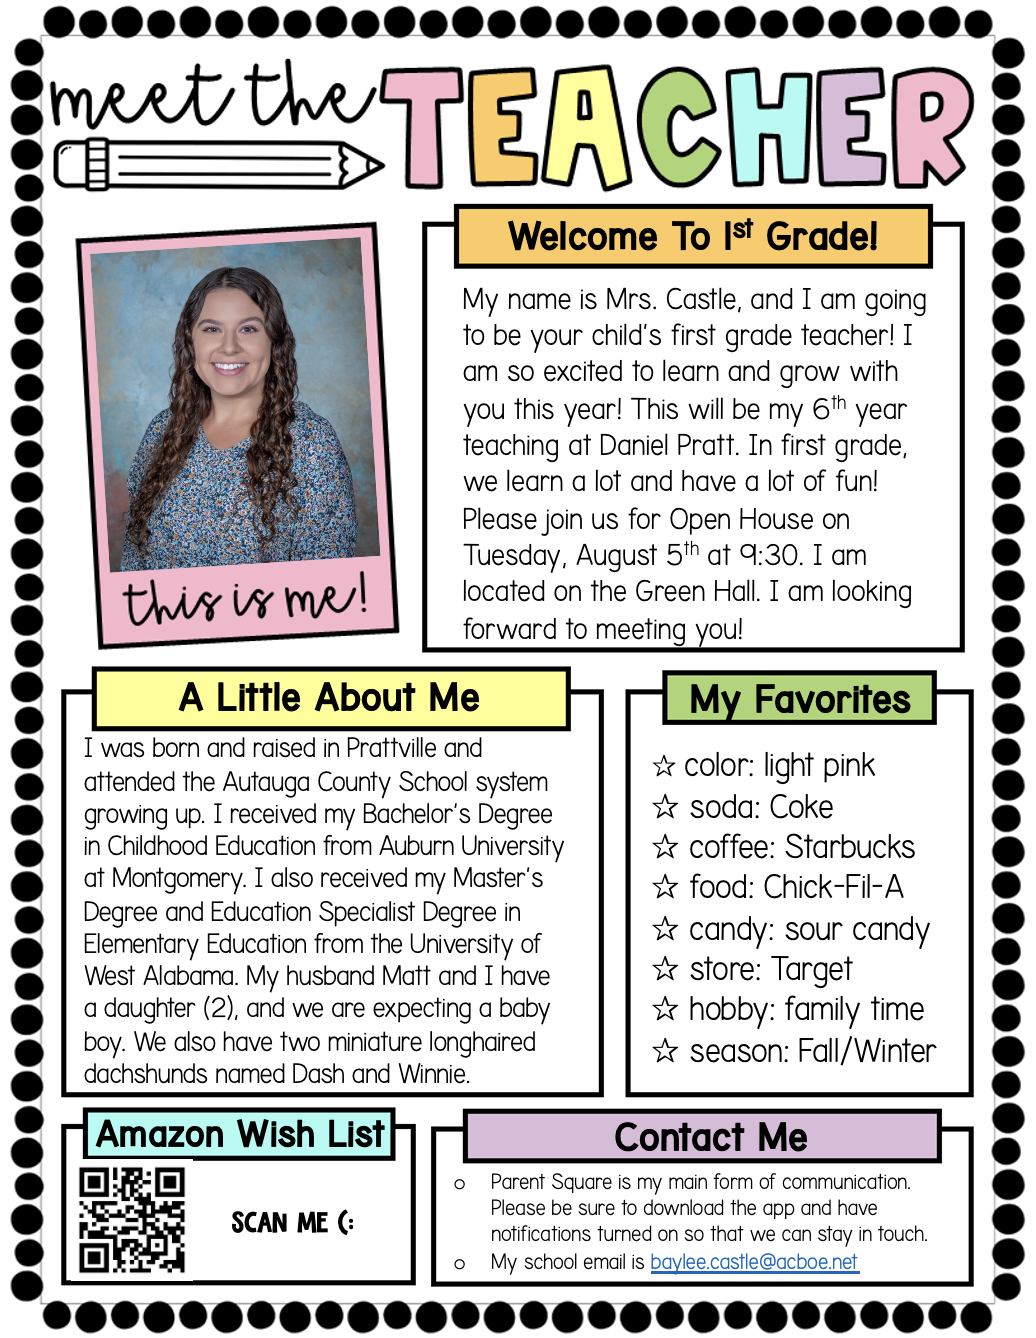 meet the TEACHER
this is me!
Welcome To 1st Grade!
My name is Mrs. Castle, and I am going
to be your child's first grade teacher! I
am so excited to learn and grow with
you this year! This will be my 6th year
teaching at Daniel Pratt. In first grade,
we learn a lot and have a lot of fun!
Please join us for Open House on
Tuesday, August 5th at 9:30. I am
located on the Green Hall. I am looking
forward to meeting you!
A Little About Me
I was born and raised in Prattville and
attended the Autauga County School system
growing up. I received my Bachelor's Degree
in Childhood Education from Auburn University
at Montgomery. I also received my Master's
Degree and Education Specialist Degree in
Elementary Education from the University of
West Alabama. My husband Matt and I have
a daughter (2), and we are expecting a baby
boy. We also have two miniature longhaired
dachshunds named Dash and Winnie.
My Favorites
☆ color: light pink
☆ soda: Coke
☆ coffee: Starbucks
☆ food: Chick-Fil-A
☆ candy: sour candy
☆ store: Target
☆ hobby: family time
☆ season: Fall/Winter
Amazon Wish List
SCAN ME (:
Contact Me
o Parent Square is my main form of communication.
Please be sure to download the app and have
notifications turned on so that we can stay in touch.
o My school email is baylee.castle@acboe.net